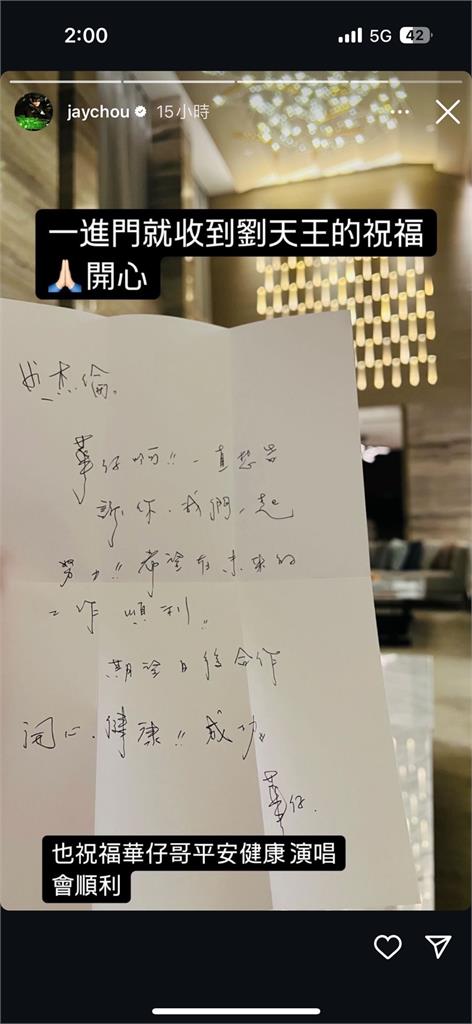 2:00
5G 42
jaychou 15小時
一進門就收到劉天王的祝福
🙏🏻開心
杰倫。
華仔啊!! 一直想告
訴你、我們一起
努力!! 希望在未來的
工作順利!!
期望日後合作
開心、健康!! 成功!!
華仔.
也祝福華仔哥平安健康 演唱
會順利